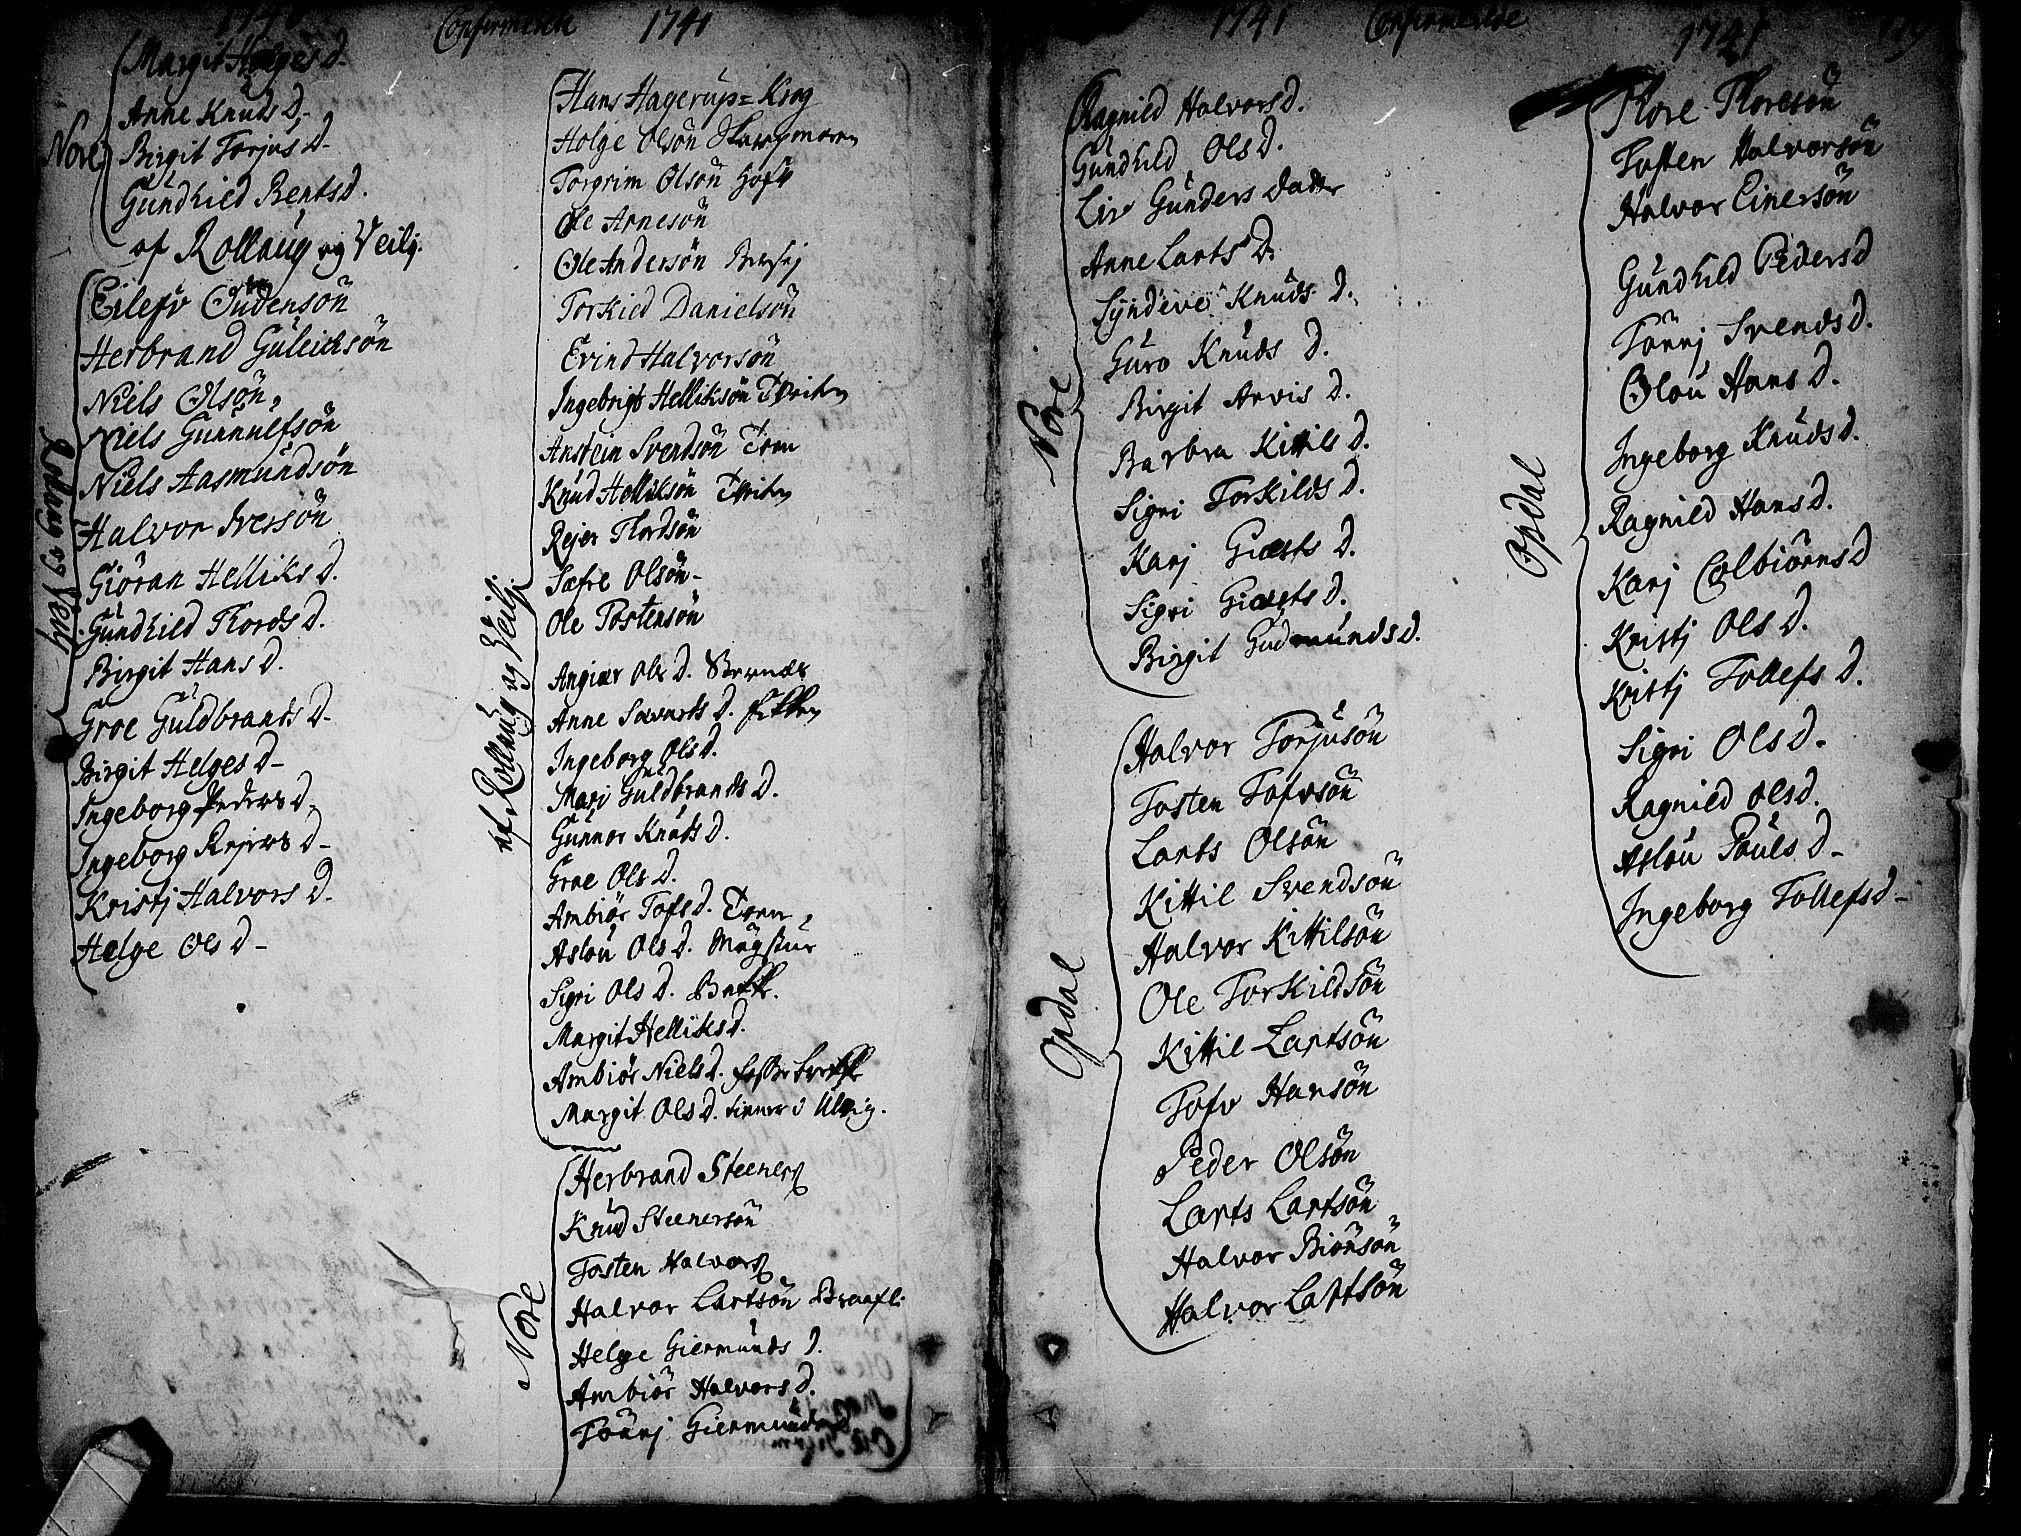 1740
Confirmerede 1741
Margit Helges D.
Anne Knuds D.
Birgit Torjus D.
Gundhild Bents D.
Nore
af Rollaug og Veilj.
Eilefv Oudensön
Herbrand Guleichsön
Niels Olsön,
Niels Gunnulfsön
Niels Aasmundsön
Halvor Iversön
Giöran Helliks D.
Gundhild Thords D.
Birgit Hans D.
Groe Guldbrands D.
Birgit Helges D.
Ingeborg Peders D.
Ingeborg Rejers D.
Kristj Halvors D.
Helge Ols D.
Rolaug og Veilj
Hans Hagerup=Krog
Holge Olsön Skarpmoen
Torgrim Olsön Hoft
Ole Arnesön
Ole Andersön
Torkied Danielsön
Evind Halvorsön
Ingebrigt Helliksön Tveiten
Anstein Svendsön Traa
Knud Helliksön Tveiten
Rejer Thordsön
Sæfre Olsön
Ole Tostensön
Angiær Ols D.
Anne Sævarts D.
Ingeborg Ols D.
Marj Guldbrands D.
Gunnor Knuds D.
Groe Ols D.
Ambiör Tofs D.
Aslou Ols D.
Sigri Ols D.
Margit Helliks D.
Ambiör Niels D.
Margit Ols D. tiener i
af Rollaug og Veilj.
Herbrand Steeners
Knud Steenersön
Tosten Halvors
Halvor Lartsön
Helge Giermunds D.
Ambiör Halvors D.
Tönnj Giermunds D
Nore
1741 Confirmerede 1741 119
Ragnild Halvors D.
Gundhild Ols D.
Liv Gunders Datter
Anne Larts D.
Syndeve Knuds D.
Guro Knuds D.
Birgit Arvis D.
Barbra Kittils D.
Sigri Torkilds D.
Karj Giæsts D.
Sigri Giæsts D.
Birgit Gudmunds D.
Nore
Halvor Torjusön
Tosten Tofvsön
Larts Olsön
Kittil Svendsön
Halvor Kittilsön
Ole Torkildsön
Kittil Lartsön
Tofv Hansön
Peder Olsön
Larts Lartsön
Halvor Biönsön
Halvor Lartsön
Opdal
Thore Thoresön
Tosten Halvorsön
Halvor Einersön
Gundhild Peders D
Tönnj Svends D.
Olou Hans D.
Ingeborg Knuds D.
Ragnild Hans D.
Karj Colbiörns D
Kristj Ols D.
Kristj Tollefs D.
Sigri Ols D.
Ragnild Ols D.
Aslou Pouls D.
Ingeborg Tollefs D
Opdal